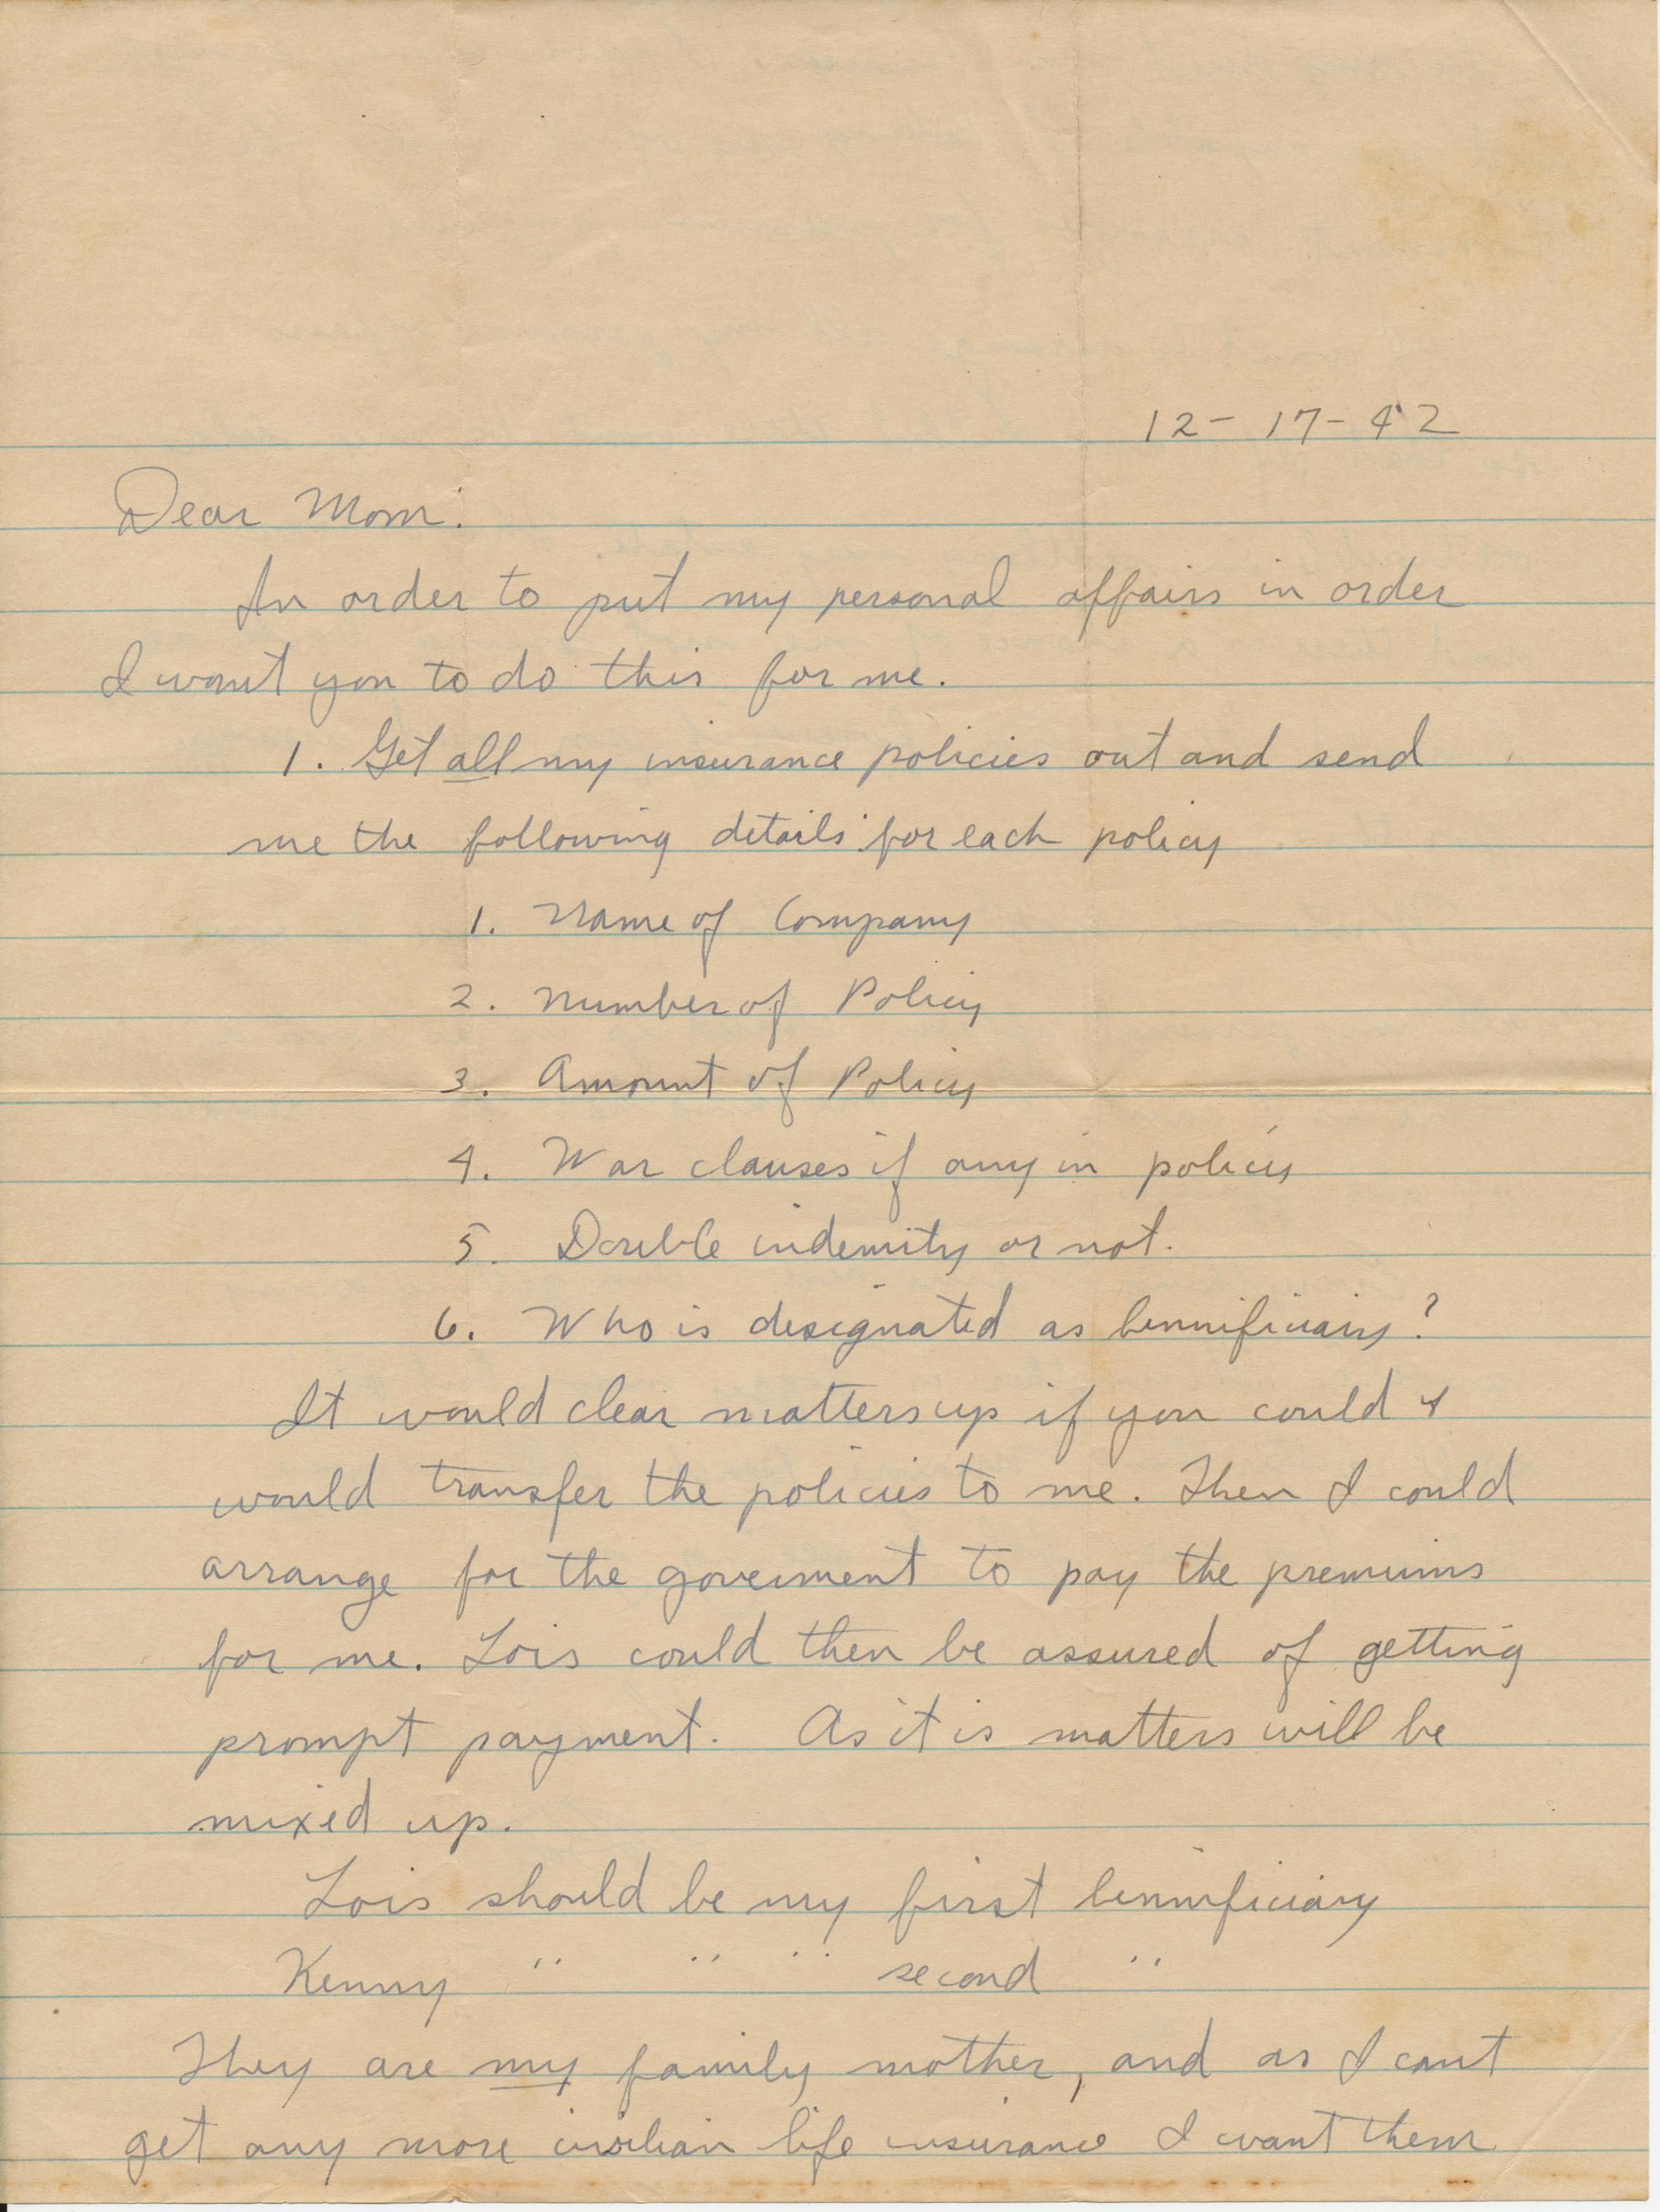 12-17-42
Dear Mom:
In order to put my personal affairs in order
I want you to do this for me.
1. Get all my insurance policies out and send
me the following details for each policy
1. Name of Company
2. Number of Policy
3. Amount of Policy
4. War clauses if any in policy
5. Double indemity or not.
6. Who is designated as bennificiary?
It would clear matters up if you could &
would transfer the policies to me. Then I could
arrange for the goverment to pay the premiums
for me. Lois could then be assured of getting
prompt payment. As it is matters will be
mixed up.
Lois should be my first bennificiary
Kenny " " " second "
They are my family mother, and as I cant
get any more civilian life insurance I want them